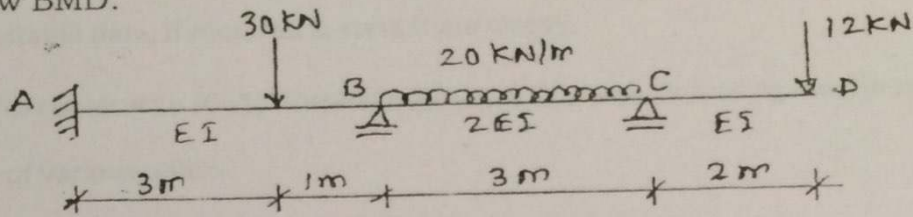 w BMD.
30 KN
12KN
20 KN/m
A
B
C
D
EI
2EI
EI
3m
1m
3m
2m